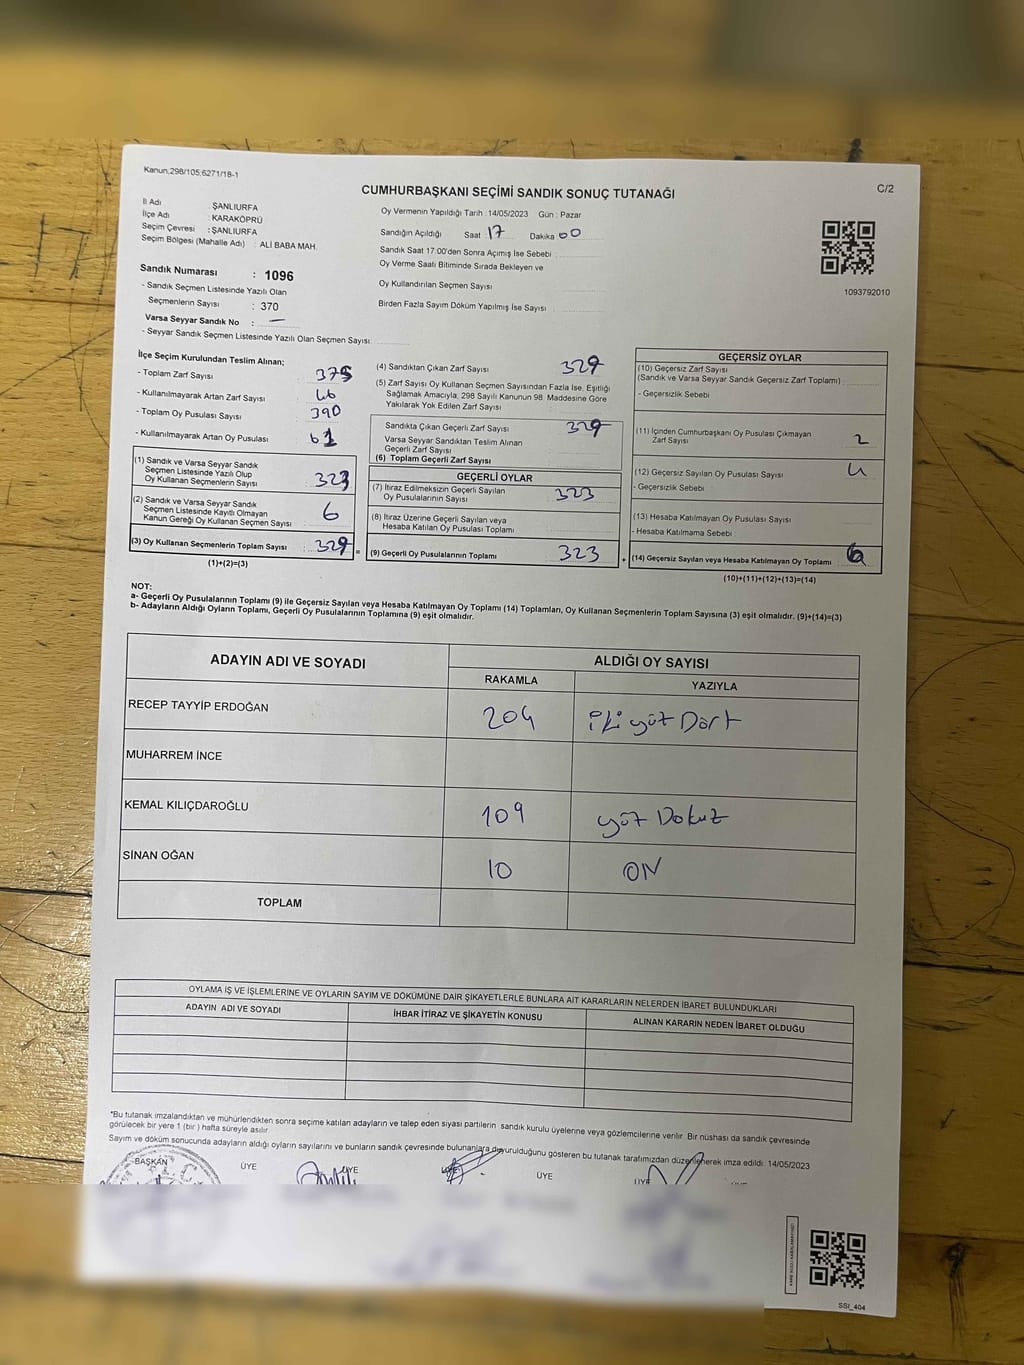 Kanun;298/105;6271/18-1
CUMHURBAŞKANI SEÇİMİ SANDIK SONUÇ TUTANAĞI
C/2
İl Adı : ŞANLIURFA
İlçe Adı : KARAKÖPRÜ
Seçim Çevresi : ŞANLIURFA
Seçim Bölgesi (Mahalle Adı) : ALİ BABA MAH.
Oy Vermenin Yapıldığı Tarih :14/05/2023 Gün : Pazar
Sandığın Açıldığı Saat 17 Dakika 00
Sandık Saat 17:00'den Sonra Açımış İse Sebebi
Oy Verme Saati Bitiminde Sırada Bekleyen ve
Oy Kullandırılan Seçmen Sayısı
Birden Fazla Sayım Döküm Yapılmış İse Sayısı
1093792010
Sandık Numarası : 1096
- Sandık Seçmen Listesinde Yazılı Olan
Seçmenlerin Sayısı : 370
Varsa Seyyar Sandık No : —
- Seyyar Sandık Seçmen Listesinde Yazılı Olan Seçmen Sayısı:
İlçe Seçim Kurulundan Teslim Alınan;
- Toplam Zarf Sayısı 375
- Kullanılmayarak Artan Zarf Sayısı 46
- Toplam Oy Pusulası Sayısı 390
- Kullanılmayarak Artan Oy Pusulası 61
(1) Sandık ve Varsa Seyyar Sandık
Seçmen Listesinde Yazılı Olup
Oy Kullanan Seçmenlerin Sayısı 323
(2) Sandık ve Varsa Seyyar Sandık
Seçmen Listesinde Kayıtlı Olmayan
Kanun Gereği Oy Kullanan Seçmen Sayısı 6
(3) Oy Kullanan Seçmenlerin Toplam Sayısı : 329 =
(1)+(2)=(3)
(4) Sandıktan Çıkan Zarf Sayısı 329
(5) Zarf Sayısı Oy Kullanan Seçmen Sayısından Fazla İse, Eşitliği
Sağlamak Amacıyla, 298 Sayılı Kanunun 98. Maddesine Göre
Yakılarak Yok Edilen Zarf Sayısı
Sandıkta Çıkan Geçerli Zarf Sayısı 329
Varsa Seyyar Sandıktan Teslim Alınan
Geçerli Zarf Sayısı
(6) Toplam Geçerli Zarf Sayısı
GEÇERLİ OYLAR
(7) İtiraz Edilmeksizin Geçerli Sayılan
Oy Pusulalarının Sayısı 323
(8) İtiraz Üzerine Geçerli Sayılan veya
Hesaba Katılan Oy Pusulası Toplamı
(9) Geçerli Oy Pusulalarının Toplamı 323 +
GEÇERSİZ OYLAR
(10) Geçersiz Zarf Sayısı
(Sandık ve Varsa Seyyar Sandık Geçersiz Zarf Toplamı)
- Geçersizlik Sebebi
(11) İçinden Cumhurbaşkanı Oy Pusulası Çıkmayan
Zarf Sayısı 2
(12) Geçersiz Sayılan Oy Pusulası Sayısı 4
- Geçersizlik Sebebi :
(13) Hesaba Katılmayan Oy Pusulası Sayısı
- Hesaba Katılmama Sebebi :
(14) Geçersiz Sayılan veya Hesaba Katılmayan Oy Toplamı 6
(10)+(11)+(12)+(13)=(14)
NOT:
a- Geçerli Oy Pusulalarının Toplamı (9) ile Geçersiz Sayılan veya Hesaba Katılmayan Oy Toplamı (14) Toplamları, Oy Kullanan Seçmenlerin Toplam Sayısına (3) eşit olmalıdır. (9)+(14)=(3)
b- Adayların Aldığı Oyların Toplamı, Geçerli Oy Pusulalarının Toplamına (9) eşit olmalıdır.
ADAYIN ADI VE SOYADI ALDIĞI OY SAYISI
RAKAMLA YAZIYLA
RECEP TAYYİP ERDOĞAN 204 iki yüz Dört
MUHARREM İNCE
KEMAL KILIÇDAROĞLU 109 yüz Dokuz
SİNAN OĞAN 10 ON
TOPLAM
OYLAMA İŞ VE İŞLEMLERİNE VE OYLARIN SAYIM VE DÖKÜMÜNE DAİR ŞİKAYETLERLE BUNLARA AİT KARARLARIN NELERDEN İBARET BULUNDUKLARI
ADAYIN ADI VE SOYADI İHBAR İTİRAZ VE ŞİKAYETİN KONUSU ALINAN KARARIN NEDEN İBARET OLDUĞU
*Bu tutanak imzalandıktan ve mühürlendikten sonra seçime katılan adayların ve talep eden siyasi partilerin sandık kurulu üyelerine veya gözlemcilerine verilir. Bir nüshası da sandık çevresinde
görülecek bir yere 1 (bir) hafta süreyle asılır.
Sayım ve döküm sonucunda adayların aldığı oyların sayılarını ve bunların sandık çevresinde bulunanlara duyurulduğunu gösteren bu tutanak tarafımızdan düzenlenerek imza edildi. 14/05/2023
BAŞKAN ÜYE ÜYE ÜYE ÜYE
SSI_404